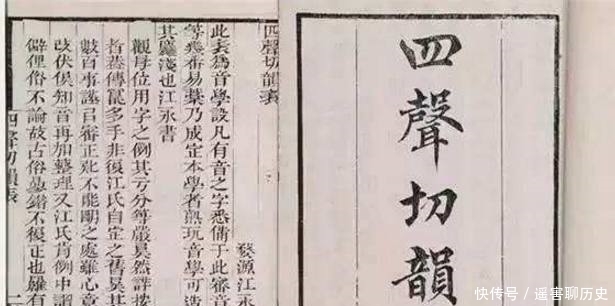 四聲切韻
四聲切韻表
婺源江永
此表爲音學設凡有音之字悉備于此審音
等幾番易藁乃成定本學者熟玩音學可造
其淺也江永書
觀母位用字之例其分等嚴然詳按
者蓋傳冩多手非復江氏自定之舊其
數百事審正不能之處雖心意
改伏俟知音再加整理又江氏例中諸
僻俚俗不論故古俗錯不復正也有
四聲切韻表
快传号 / 遥害聊历史